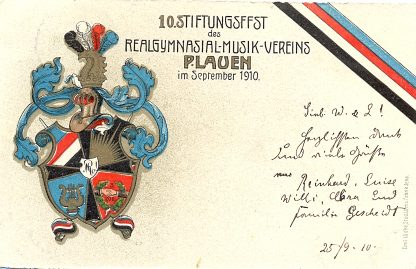 10. STIFTUNGSFEST
des
REALGYMNASIAL-MUSIK-VEREINS
PLAUEN
im September 1910.
Lieb. W. & L!
Herzlichsten Dank
und viele Grüße
von Reinhard, Luise
Willi, Clara und
Familie
25/9 - 10 -